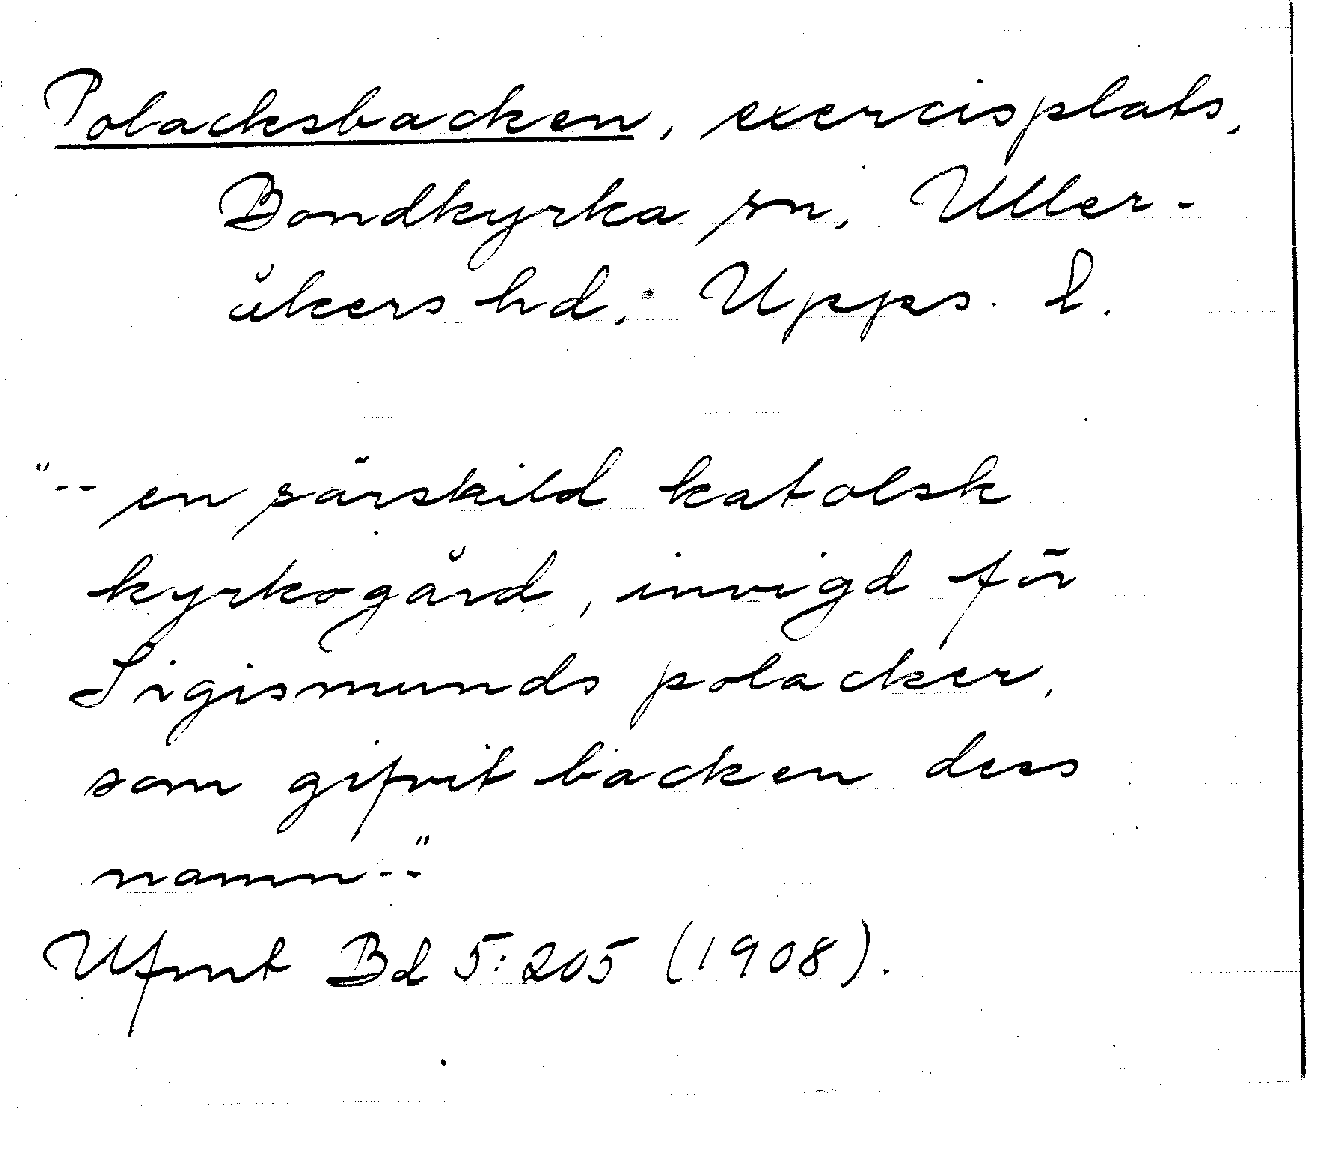 Polacksbacken, exercisplats,
Bondkyrka sn, Uller-
åkers hd; Upps. l.
"-- en särskild katolsk
kyrkogård, invigd för
Sigismunds polacker,
som gifvit backen dess
namn --"
Ufmt Bd 5:205 (1908).